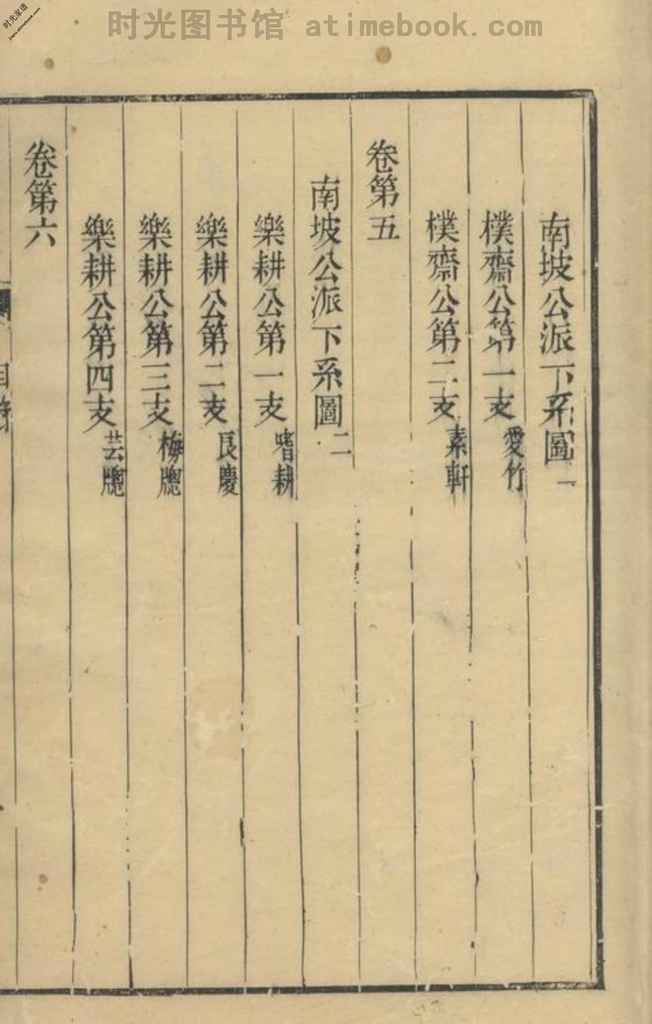 时光图书馆 atimebook.com
南坡公派下系圖一
樸齋公第一支 愛竹
樸齋公第二支 素軒
卷第五
南坡公派下系圖二
樂耕公第一支 嗜耕
樂耕公第二支 長慶
樂耕公第三支 梅牕
樂耕公第四支 芸牕
卷第六